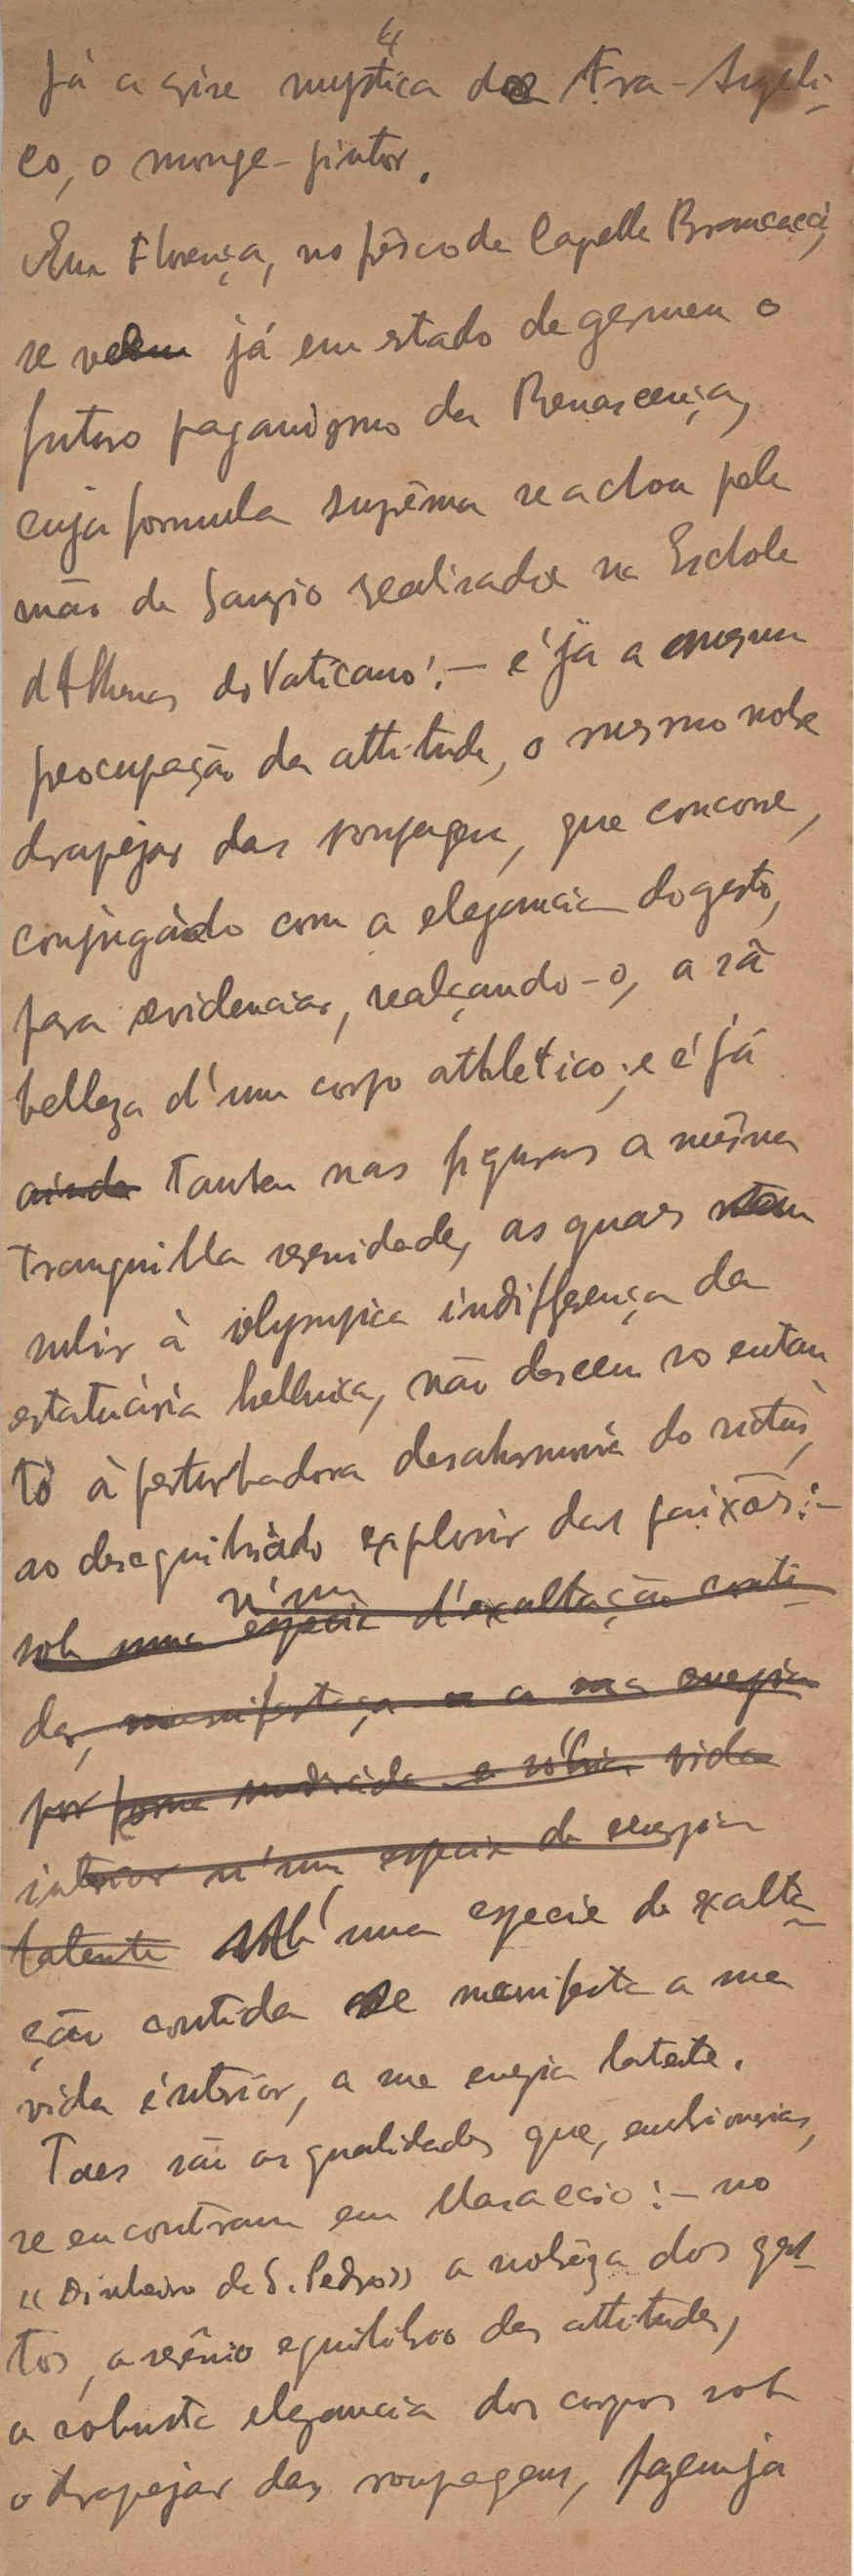 4
Já a crise mystica de Fra-Angeli-
co, o monge-pintor.
Em Florença, no frêsco da Capella Brancacci,
se vê já em estado de germen o
futuro paganismo da Renascença,
cuja formula suprêma se achou pela
mão de Sanzio realisada na Eschola
d'Athenas do Vaticano: — é já a mesma
preocupação da attitude, o mesmo nobre
drapejar das roupagens, que concorre,
conjugado com a elegancia do gesto,
para evidenciar, realçando-o, a sã
belleza d'um corpo athletico; e é já
ainda tambem nas figuras a mesma
tranquilla serenidade, as quaes sem
subir à olympica indifferença da
estatuária hellenica, não descem no entan
to à perturbadora desarmonia do rictus,
ao desequilibrado explosir das paixões: —
n'uma
sob uma especie d'exaltação conti-
da, manifesta a sua energia
por forma moderada e sóbria vida
interior n'uma especie de energia
latente sob uma especie de exalta-
ção contida se manifesta a sua
vida interior, a sua energia latente.
Taes são as qualidades que, embrionarias,
se encontram em Masaccio: — no
«Dinheiro de S. Pedro» a nobrêza dos ges-
tos, o serênio equilibrio das attitudes,
a robusta elegancia dos corpos sob
o drapejar das roupagens, fazem já